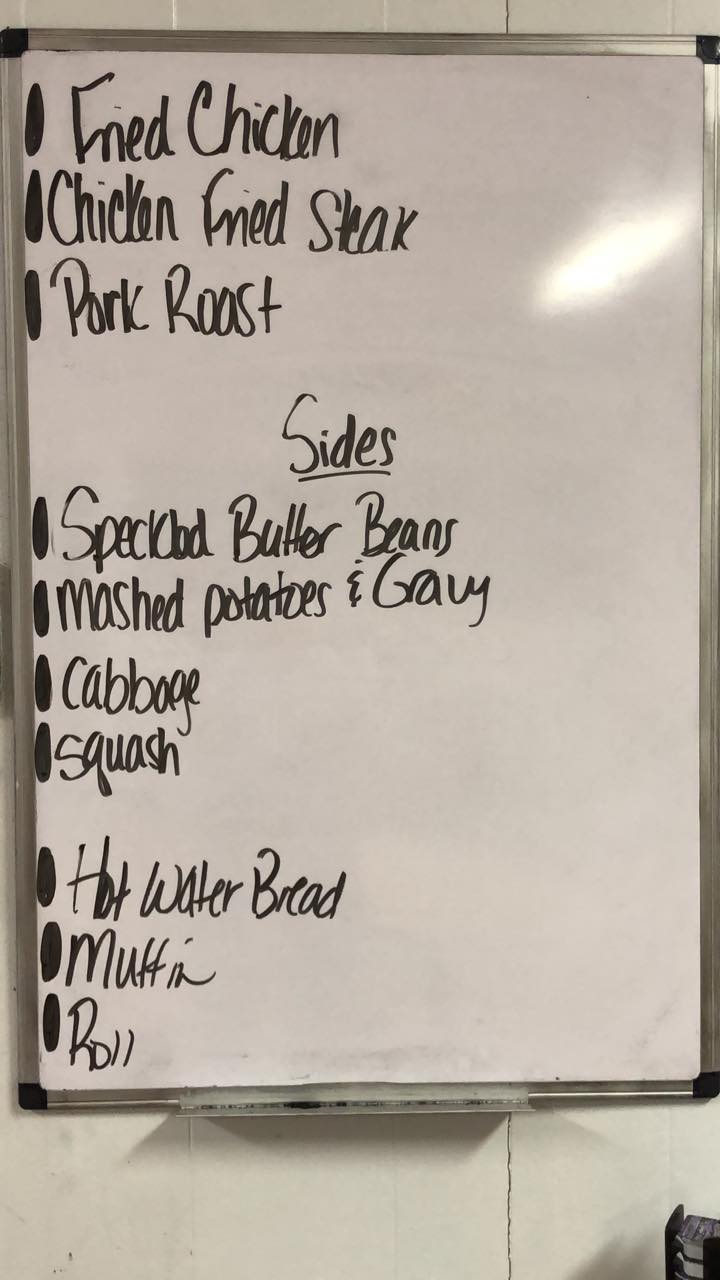 Fried Chicken
Chicken Fried Steak
Pork Roast
Sides
Speckled Butter Beans
Mashed potatoes & Gravy
Cabbage
Squash
Hot Water Bread
Muffin
Roll